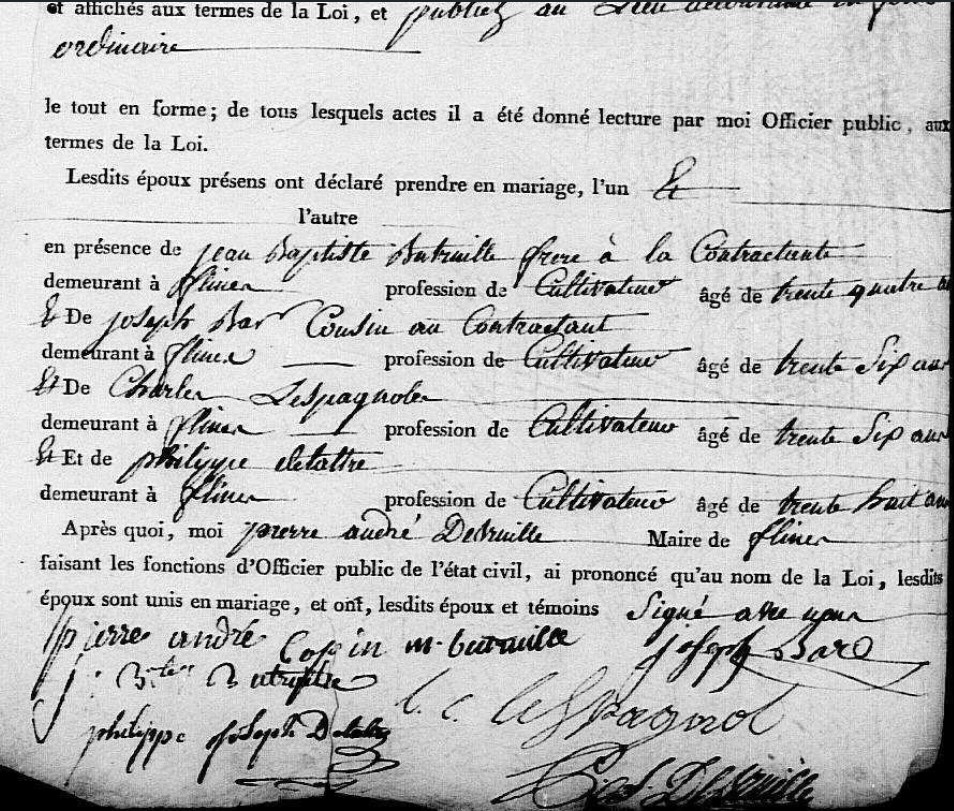 et affichés aux termes de la Loi, et publiez au Lieu
ordinaire
le tout en forme; de tous lesquels actes il a été donné lecture par moi Officier public, aux
termes de la Loi.
Lesdits époux présens ont déclaré prendre en mariage, l'un &
l'autre
en présence de jean Baptiste Butruille frere à la Contractante
demeurant à flines profession de Cultivateur âgé de trente quatre
& De joseph Bar Cousin au Contractant
demeurant à flines profession de Cultivateur âgé de trente Six ans
& De Charles Lespagnole
demeurant à flines profession de Cultivateur âgé de trente Six ans
& Et de philippe delattre
demeurant à flines profession de Cultivateur âgé de trente huit ans
Après quoi, moi pierre andré Maire de flines
faisant les fonctions d'Officier public de l'état civil, ai prononcé qu'au nom de la Loi, lesdits
époux sont unis en mariage, et ont, lesdits époux et témoins Signé avec nous
pierre andré Copin m butruille joseph Bare
j: B.te Butruille
L. C. leSpagnol
philippe joseph